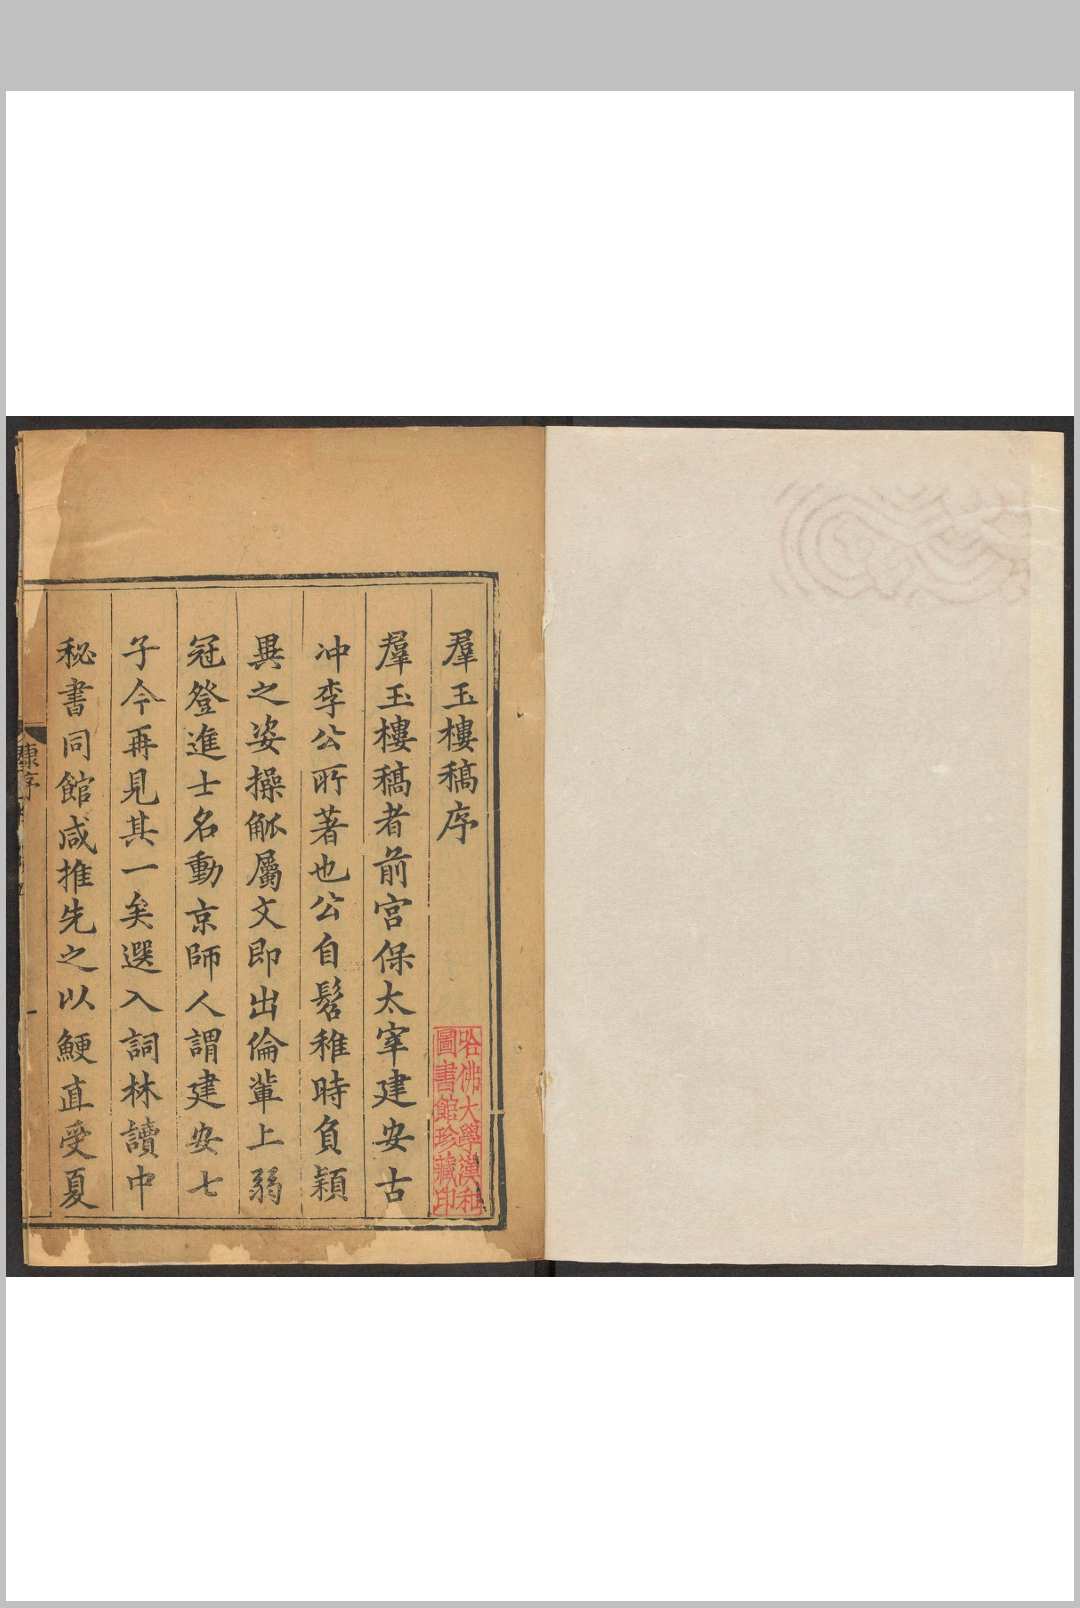 羣玉樓稿序
羣玉樓稿者前宫保太宰建安古
冲李公所著也公自髫稚時負穎
異之姿操觚屬文即出倫輩上弱
冠登進士名動京師人謂建安七
子今再見其一矣選入詞林讀中
秘書同館咸推先之以鯁直受夏
康序
哈佛大學漢和
圖書館珍藏印